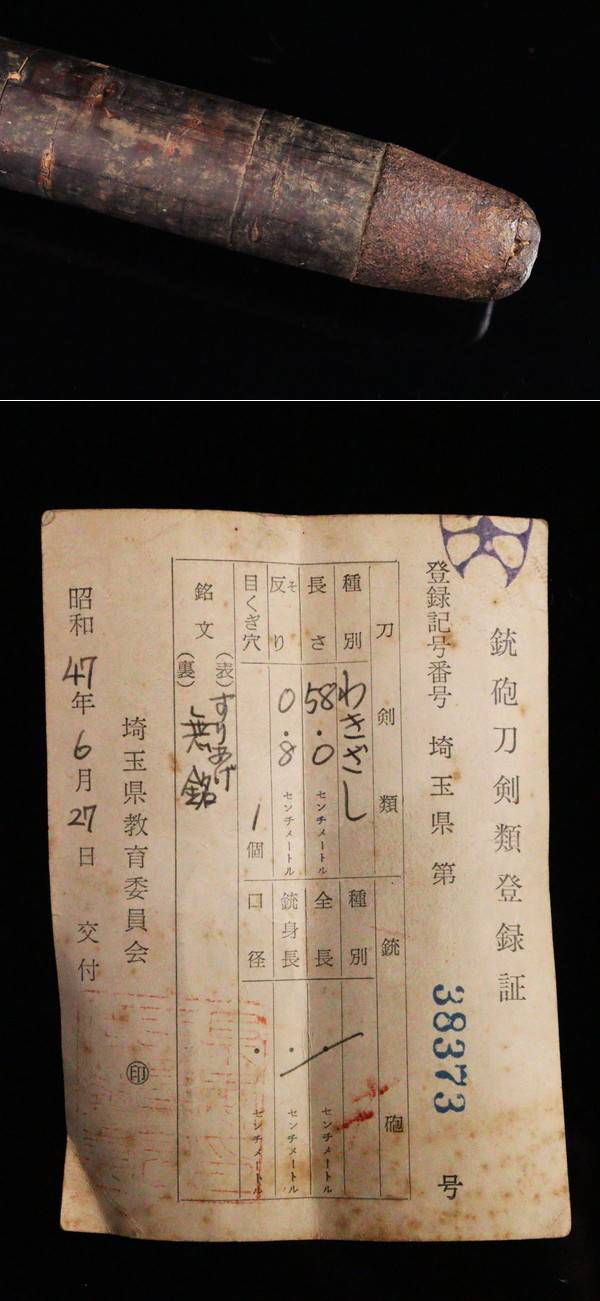 銃砲刀剣類登録証
登録記号番号 埼玉県 第 38373 号
刀剣類 銃砲
種別 わきざし 種別
長さ 58.0 センチメートル 全長 . センチメートル
反り ソ 0.8 センチメートル 銃身長 . センチメートル
目くぎ穴 1 個 口径 . センチメートル
銘文 (表) すりあげ
(裏) 無銘
埼玉県教育委員会 ㊞
昭和47年6月27日 交付